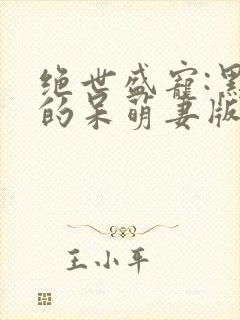 绝世盛宠:黑
的呆萌妻版
王小平